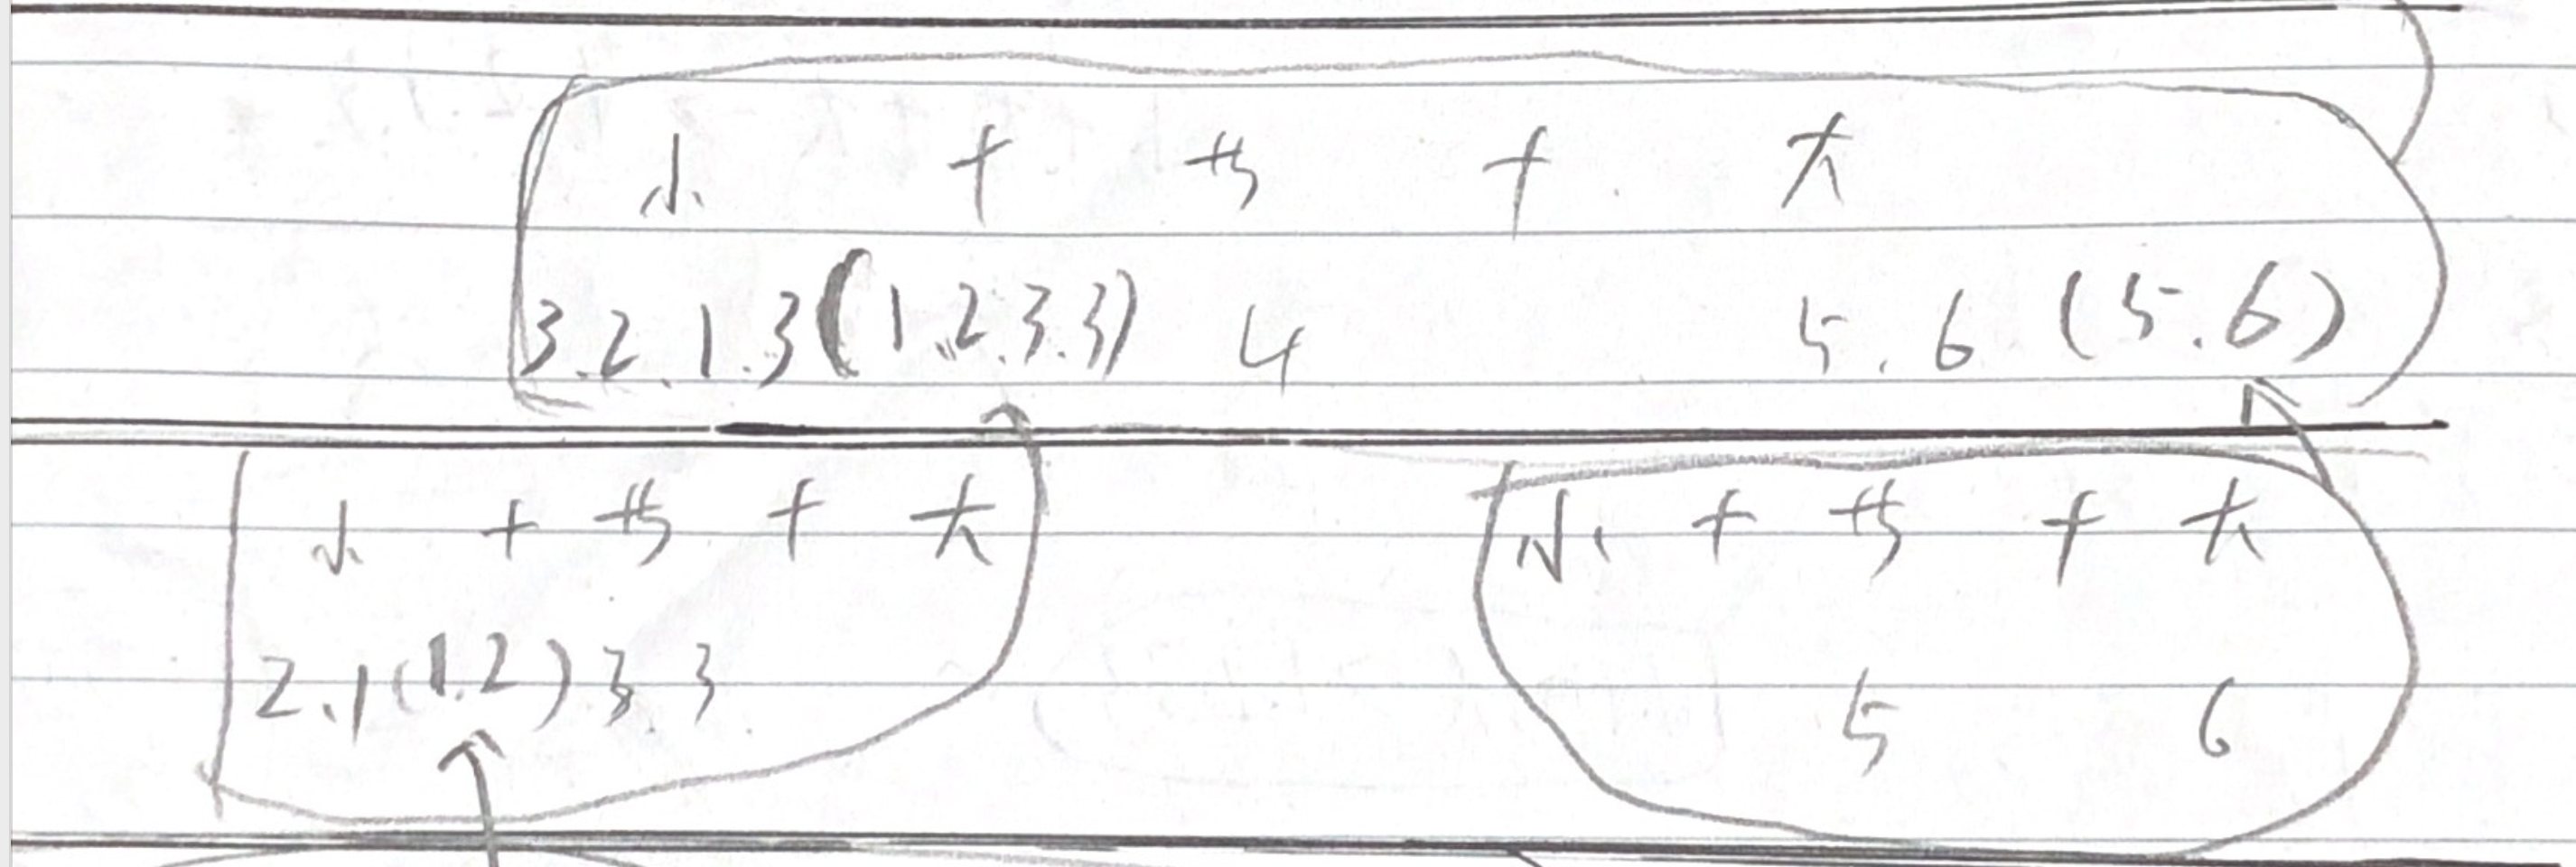 小 + + 大
3.2.1.3(1.2.3.3) 4 5.6 (5.6)
小 + + 大
2.1(1.2)3.3
小 + + 大
5 6